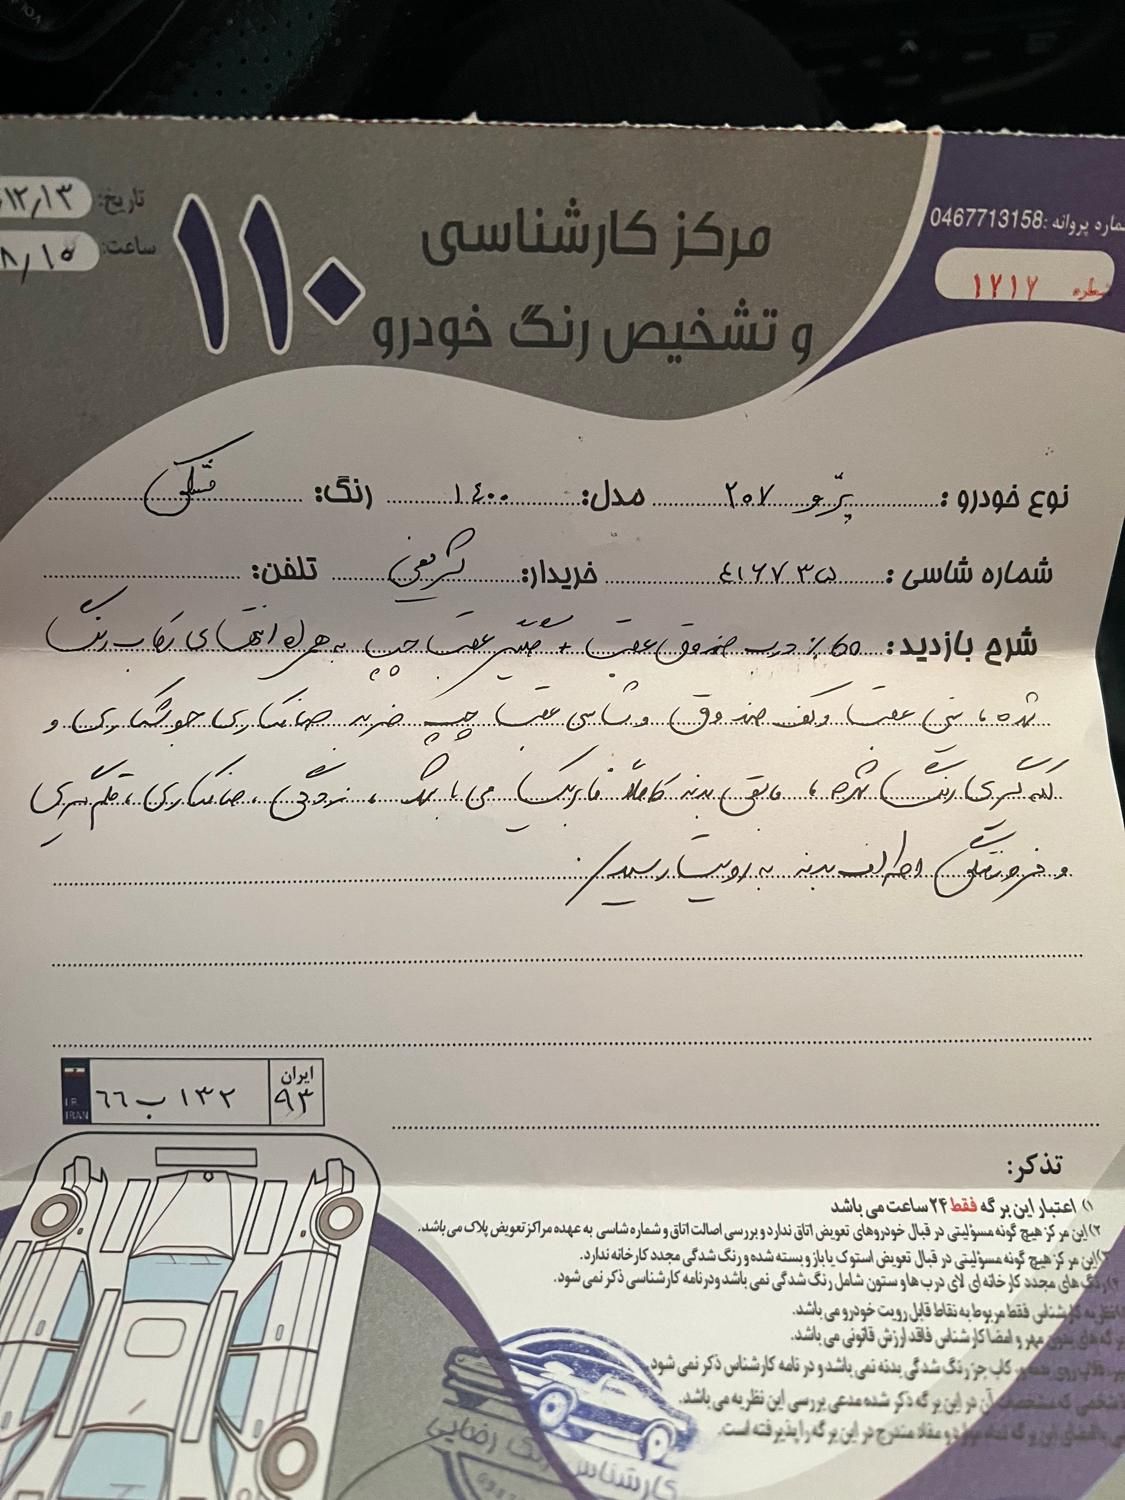 تاریخ: ۱۲/۱۳
ساعت: ۸/۱۵
۱۱۰
مرکز کارشناسی
و تشخیص رنگ خودرو
ماره پروانه :0467713158
شماره ۱۲۱۲
نوع خودرو : پژو ۲۰۷ مدل: ۱۴۰۰ رنگ: مشکی
شماره شاسی : ۴۱۶۷۳۵ خریدار: شریفی تلفن:
شرح بازدید: 60٪ درب صندوق عقب + گلگیر عقب چپ به همراه انتهای رکاب رنگ
شده، سینی عقب و کف صندوق و شاسی عقب چپ ضربه صافکاری جوشکاری و
لکه گیری رنگ شده، مابقی بدنه کاملاً فابریک می باشد، زدگی، صافکاری، قلم گیری
و فرورفتگی اطراف بدنه به رویت رسید/.
ایران
۹۳
۱۳۲ ب ۶۶
I.R.
IRAN
تذکر:
۱) اعتبار این برگه فقط ۲۴ ساعت می باشد
۲) این مرکز هیچ گونه مسؤلیتی در قبال خودروهای تعویض اتاق ندارد و بررسی اصالت اتاق و شماره شاسی به عهده مراکز تعویض پلاک می باشد.
۳) این مرکز هیچ گونه مسؤلیتی در قبال تعویض استوک یا باز و بسته شده و رنگ شدگی مجدد کارخانه ندارد.
۴) رنگ های مجدد کارخانه ای لای درب ها و ستون شامل رنگ شدگی نمی باشد و در نامه کارشناسی ذکر نمی شود.
نظریه کارشناس فقط مربوط به نقاط قابل رویت خودرو می باشد.
برگه های بدون مهر و امضا کارشناس فاقد ارزش قانونی می باشد.
رکاب جز رنگ شدگی بدنه نمی باشد و در نامه کارشناس ذکر نمی شود.
شخصی که مشخصات آن در این برگه ذکر شده مدعی بررسی این نظریه می باشد.
امضای این برگه تمام موارد و مفاد مندرج در این برگه را پذیرفته است.
کارشناس رنگ رضایی